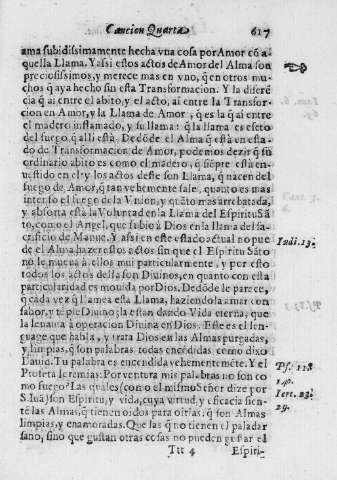 Cancion Quarta 617
ama subidissimamente hecha vna cosa por Amor cõ a-
quella Llama. Y assi estos actos de Amor del Alma son
preciosissimos, y merece mas en vno, q̃ en otros mu-
chos q̃ aya hecho sin esta Transformacion. Y la diferẽ
cia q̃ ai entre el abito, y el acto, ai entre la Transfor-
cion en Amor, y la Llama de Amor, q̃ es la q̃ ai entre
el madero inflamado, y su llama: q̃ la llama es efeto
del fuego q̃ alli està. Dedõde el Alma q̃ està en esta-
do de Transformacion de Amor, podemos dezir q̃ su
ordinario abito es como el madero, q̃ siẽpre està en-
uestido en el; y los actos deste son Llama, q̃ nacen del
fuego de Amor, q̃ tan vehemente sale, quanto es mas
intenso el fuego de la Vnion, y quãto mas arrebatada,
y absorta està la Voluntad en la Llama del Espiritu Sã
to, como el Angel, que subiò à Dios en la llama del sa-
crificio de Manue. Y assi en este estado actual no pue
de el Alma hazer estos actos sin que el Espiritu Sãto
no le mueua à ellos mui particularmente, y por esto
todos los actos della son Diuinos, en quanto con esta
particularidad es mouida por Dios. Dedõde le parece,
q̃ cada vez q̃ llamea esta Llama, haziendola amar con
sabor, y tẽple Diuino, la estan dando Vida eterna, que
la leuanta à operacion Diuina en Dios. Este es el len-
guage que habla, y trata Dios en las Almas purgadas,
y limpias, q̃ son palabras todas encẽdidas, como dixo
Dauid. Tu palabra es encendida vehemẽtemẽte. Y el
Profeta Ieremias: Por ventura mis palabras no son co
mo fuego? Las quales (como el mismo Señor dize por
S. Iuã) son Espiritu, y vida, cuya virtud, y eficacia sien-
tẽ las Almas, q̃ tienen oidos para oirlas, q̃ son Almas
limpias, y enamoradas. Que las q̃ no tienen el paladar
sano, sino que gustan otras cosas no pueden gustar el
Ttt 4 Espiri-
Iudi. 13.
Ps. 118
140.
Iere. 23.
29.